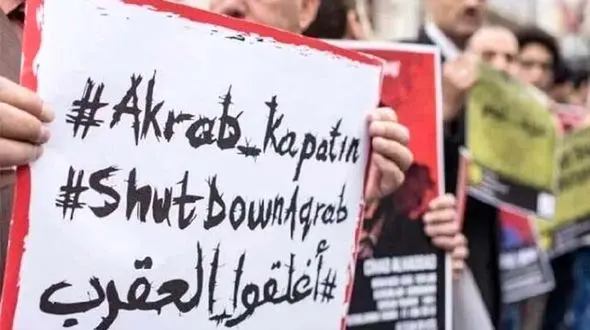 #Akrab_Kapatın
#ShutDownAqrab
#أغلقوا_العقرب